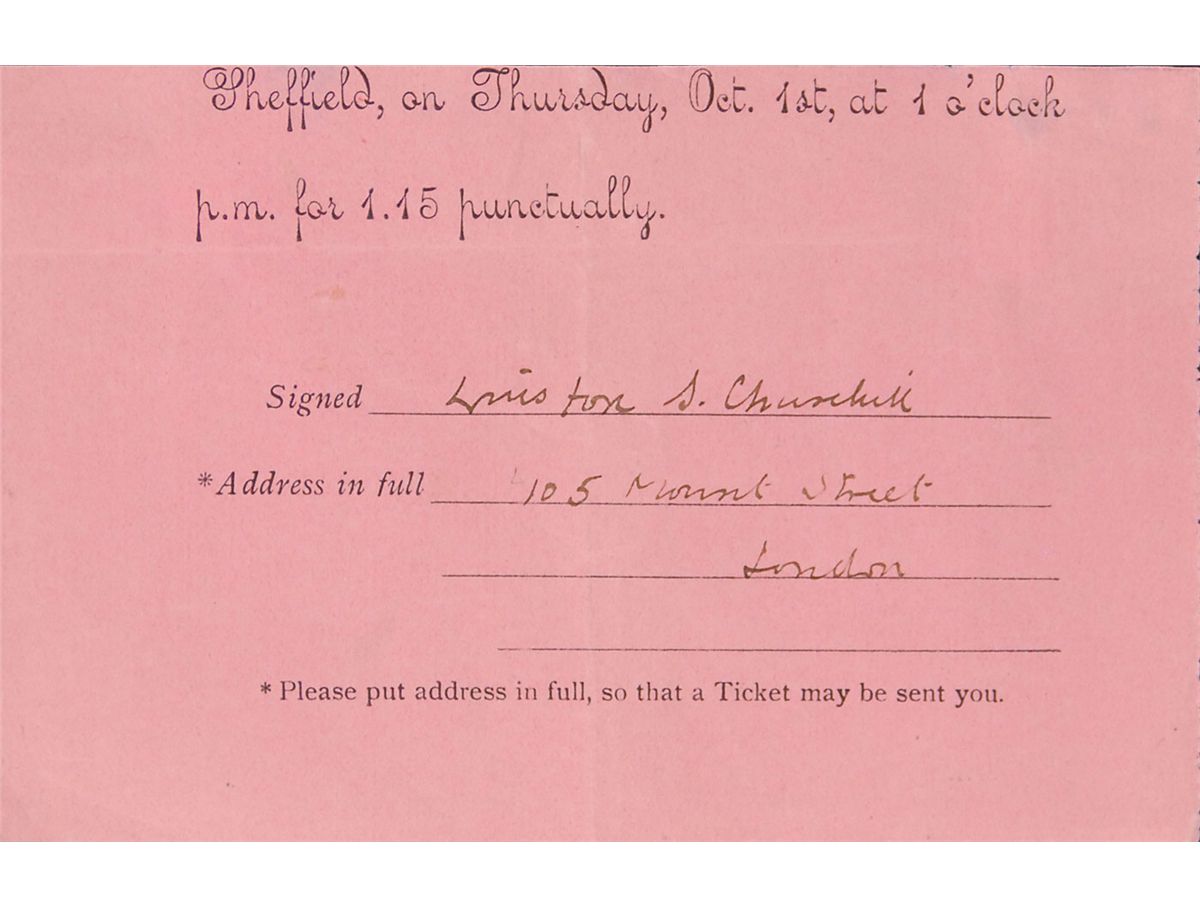 Sheffield, on Thursday, Oct. 1st, at 1 o'clock
p.m. for 1.15 punctually.
Signed Winston S. Churchill
*Address in full 105 Mount Street
London
* Please put address in full, so that a Ticket may be sent you.